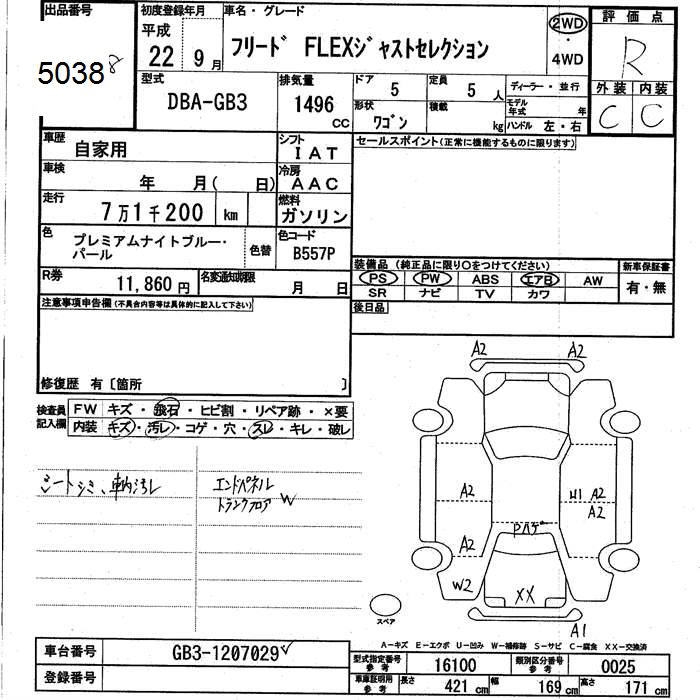 出品番号
5038 8
初度登録年月
平成
22 9 月
車名・グレード
フリード FLEXジャストセレクション
2WD
・
4WD
評 価 点
R
外装 内装
C C
型式
DBA-GB3
排気量
1496
CC
ドア 5
定員 5 人
ディーラー・並行
形状 ワゴン
積載 kg
モデル年式 年
ハンドル 左・右
車歴 自家用
シフト IAT
セールスポイント(正常に機能するものに限ります)
車検 年 月( 日)
冷房 AAC
走行 7万1千200 km
燃料 ガソリン
色 プレミアムナイトブルー・パール
色替
色コード B557P
装備品 (純正品に限り○をつけてください)
新車保証書
PS PW ABS エアB AW
SR ナビ TV カワ
有・無
R券 11,860円
名変通知期限 月 日
後日品
注意事項申告欄(不具合内容等は具体的に記入して下さい)
修復歴 有〔箇所 〕
検査員記入欄
FW キズ・飛石・ヒビ割・リペア跡・×要
内装 キズ・汚レ・コゲ・穴・スレ・キレ・破レ
シートシミ、車内汚レ
エンドパネル
トランクフロア W
A2 A2
A2
H1 A2
A2
Pハゲ
A2
W2
XX
A1
スペア
A-キズ E-エクボ U-凹み W-補修跡 S-サビ C-腐食 XX-交換済
車台番号 GB3-1207029
登録番号
型式指定番号参考 16100
類別区分番号参考 0025
車庫証明用参考
長さ 421 cm
幅 169 cm
高さ 171 cm